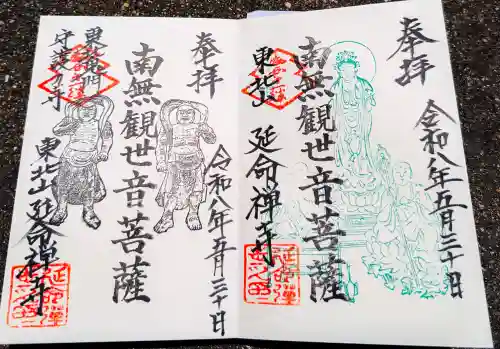 奉拝
南無観世音菩薩
令和八年五月三十日
東北山 延命禅寺
奉拝
南無観世音菩薩
令和八年五月三十日
東北山延命禅寺